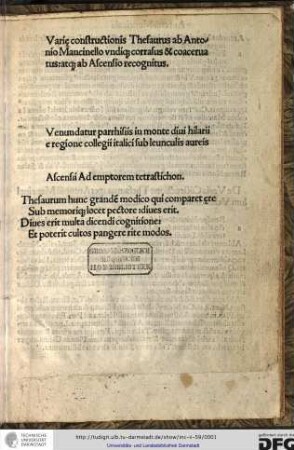 Varię constructionis Thesaurus ab Anto-
nio Mancinello vndiq; corrasus & coacerua
tus: atq; ab Ascensio recognitus.
Venundatur parrhisiis in monte diui hilarii
e regione collegii italici sub leunculis aureis
Ascensii Ad emptorem tetrastichon.
Thesaurum hunc grandē modico qui comparet ęre
Sub memoriq; locet pectore: diues erit.
Diues erit multa dicendi cognitione:
Et poterit cultos pangere rite modos.
TECHNISCHE
UNIVERSITÄT
DARMSTADT
http://tudigit.ulb.tu-darmstadt.de/show/inc-ii-59/0001
Universitäts- und Landesbibliothek Darmstadt
gefördert durch die
DFG